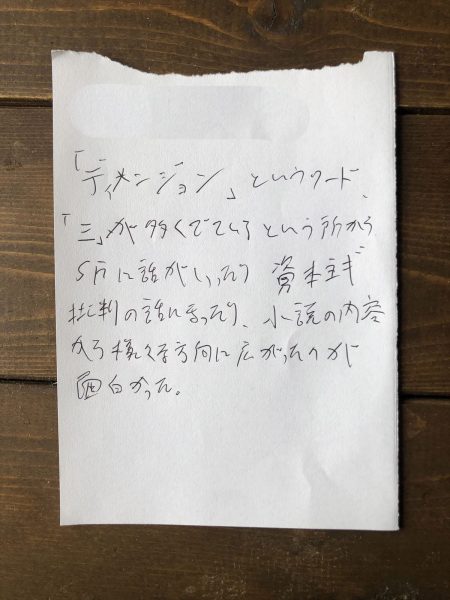 「ディメンション」というワード、
「三」が多くでているという所から
SFに話がいったり 資本主義
批判の話になったり、小説の内容
から様々な方向に広がったのが
面白かった。